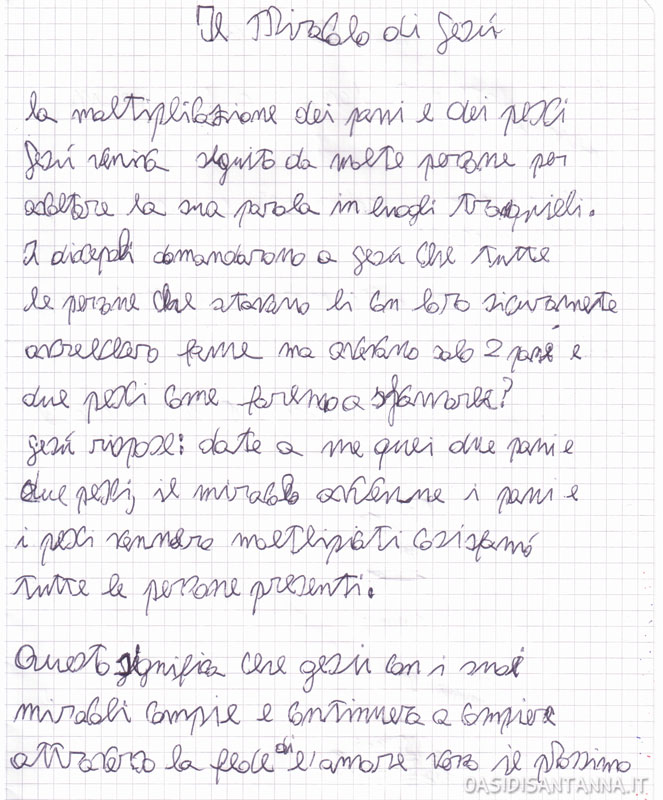 Il Miracolo di Gesù
la moltiplicazione dei pani e dei pesci
Gesù veniva seguito da molte persone per
ascoltare la sua parola in luoghi tranquilli.
I discepoli domandarono a gesù che tutte
le persone che stavano li con loro sicuramente
avrebbero fame ma avevano solo 2 pani e
due pesci come faremo a sfamarle?
gesù rispose: date a me quei due pani e
due pesci, il miracolo avvenne i pani e
i pesci vennero moltlipiati così sfamò
tutte le persone presenti.
Questo significa che gesù con i suoi
miracoli compie e continuera a compiere
attraverso la fede di e l'amore verso il prossimo
OASIDISANTANNA.IT